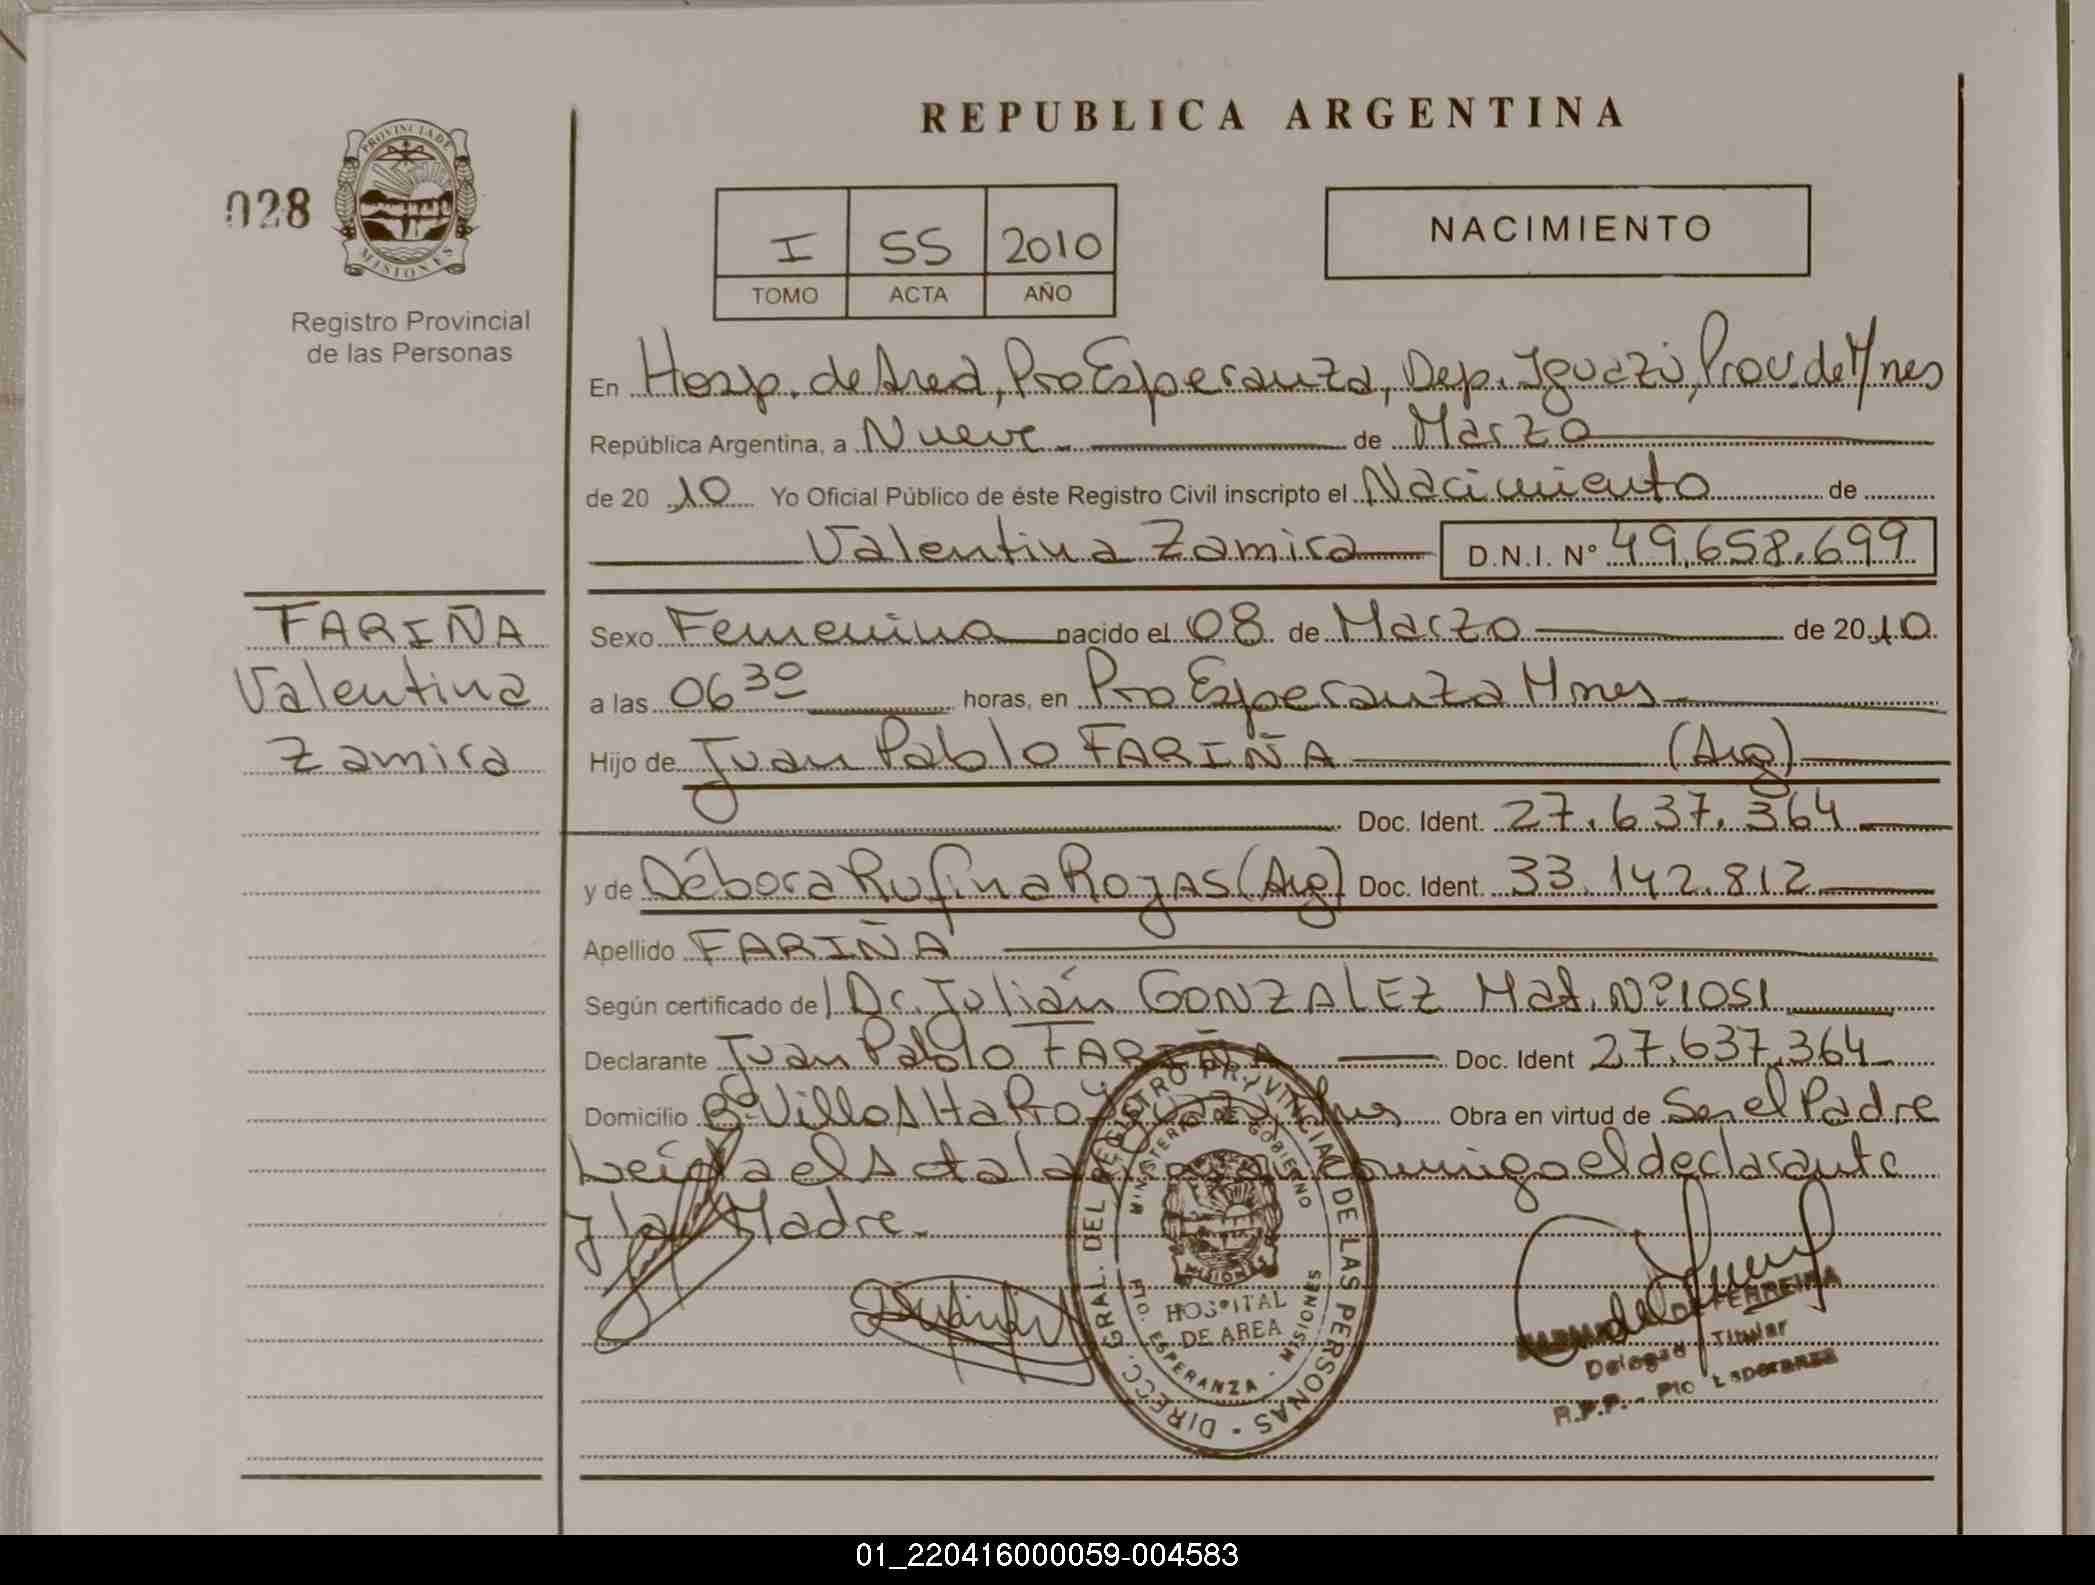 REPUBLICA ARGENTINA
028
PROVINCIA DE
MISIONES
Registro Provincial
de las Personas
I 55 2010
TOMO ACTA AÑO
NACIMIENTO
En Hosp. de Area, Pto Esperanza, Dep. Iguazú, Prov. de Mnes
República Argentina, a Nueve de Marzo
de 20 10 Yo Oficial Público de éste Registro Civil inscripto el Nacimiento de
Valentina Zamira D.N.I. Nº 49.658.699
FARIÑA
Valentina
Zamira
Sexo Femenino nacido el 08 de Marzo de 2010
a las 06 30 horas, en Pto Esperanza Mnes
Hijo de Juan Pablo FARIÑA (Arg)
Doc. Ident. 27.637.364
y de Débora Rufina ROJAS (Arg) Doc. Ident. 33.142.812
Apellido FARIÑA
Según certificado de Dr. Julián GONZALEZ Mat. Nº 1051
Declarante Juan Pablo FARIÑA Doc. Ident 27.637.364
Domicilio Bº Villa Alta Obra en virtud de Ser el Padre
Leída el Acta la conmigo el declarante
y la Madre.
DIRECC. GRAL. DEL REGISTRO PROVINCIAL DE LAS PERSONAS
MINISTERIO DE GOBIERNO
MISIONES
HOSPITAL
DE AREA
PTO. ESPERANZA - MISIONES
FERREIRA
Delegad Titular
R.P.P. - Pto Esperanza
01_220416000059-004583